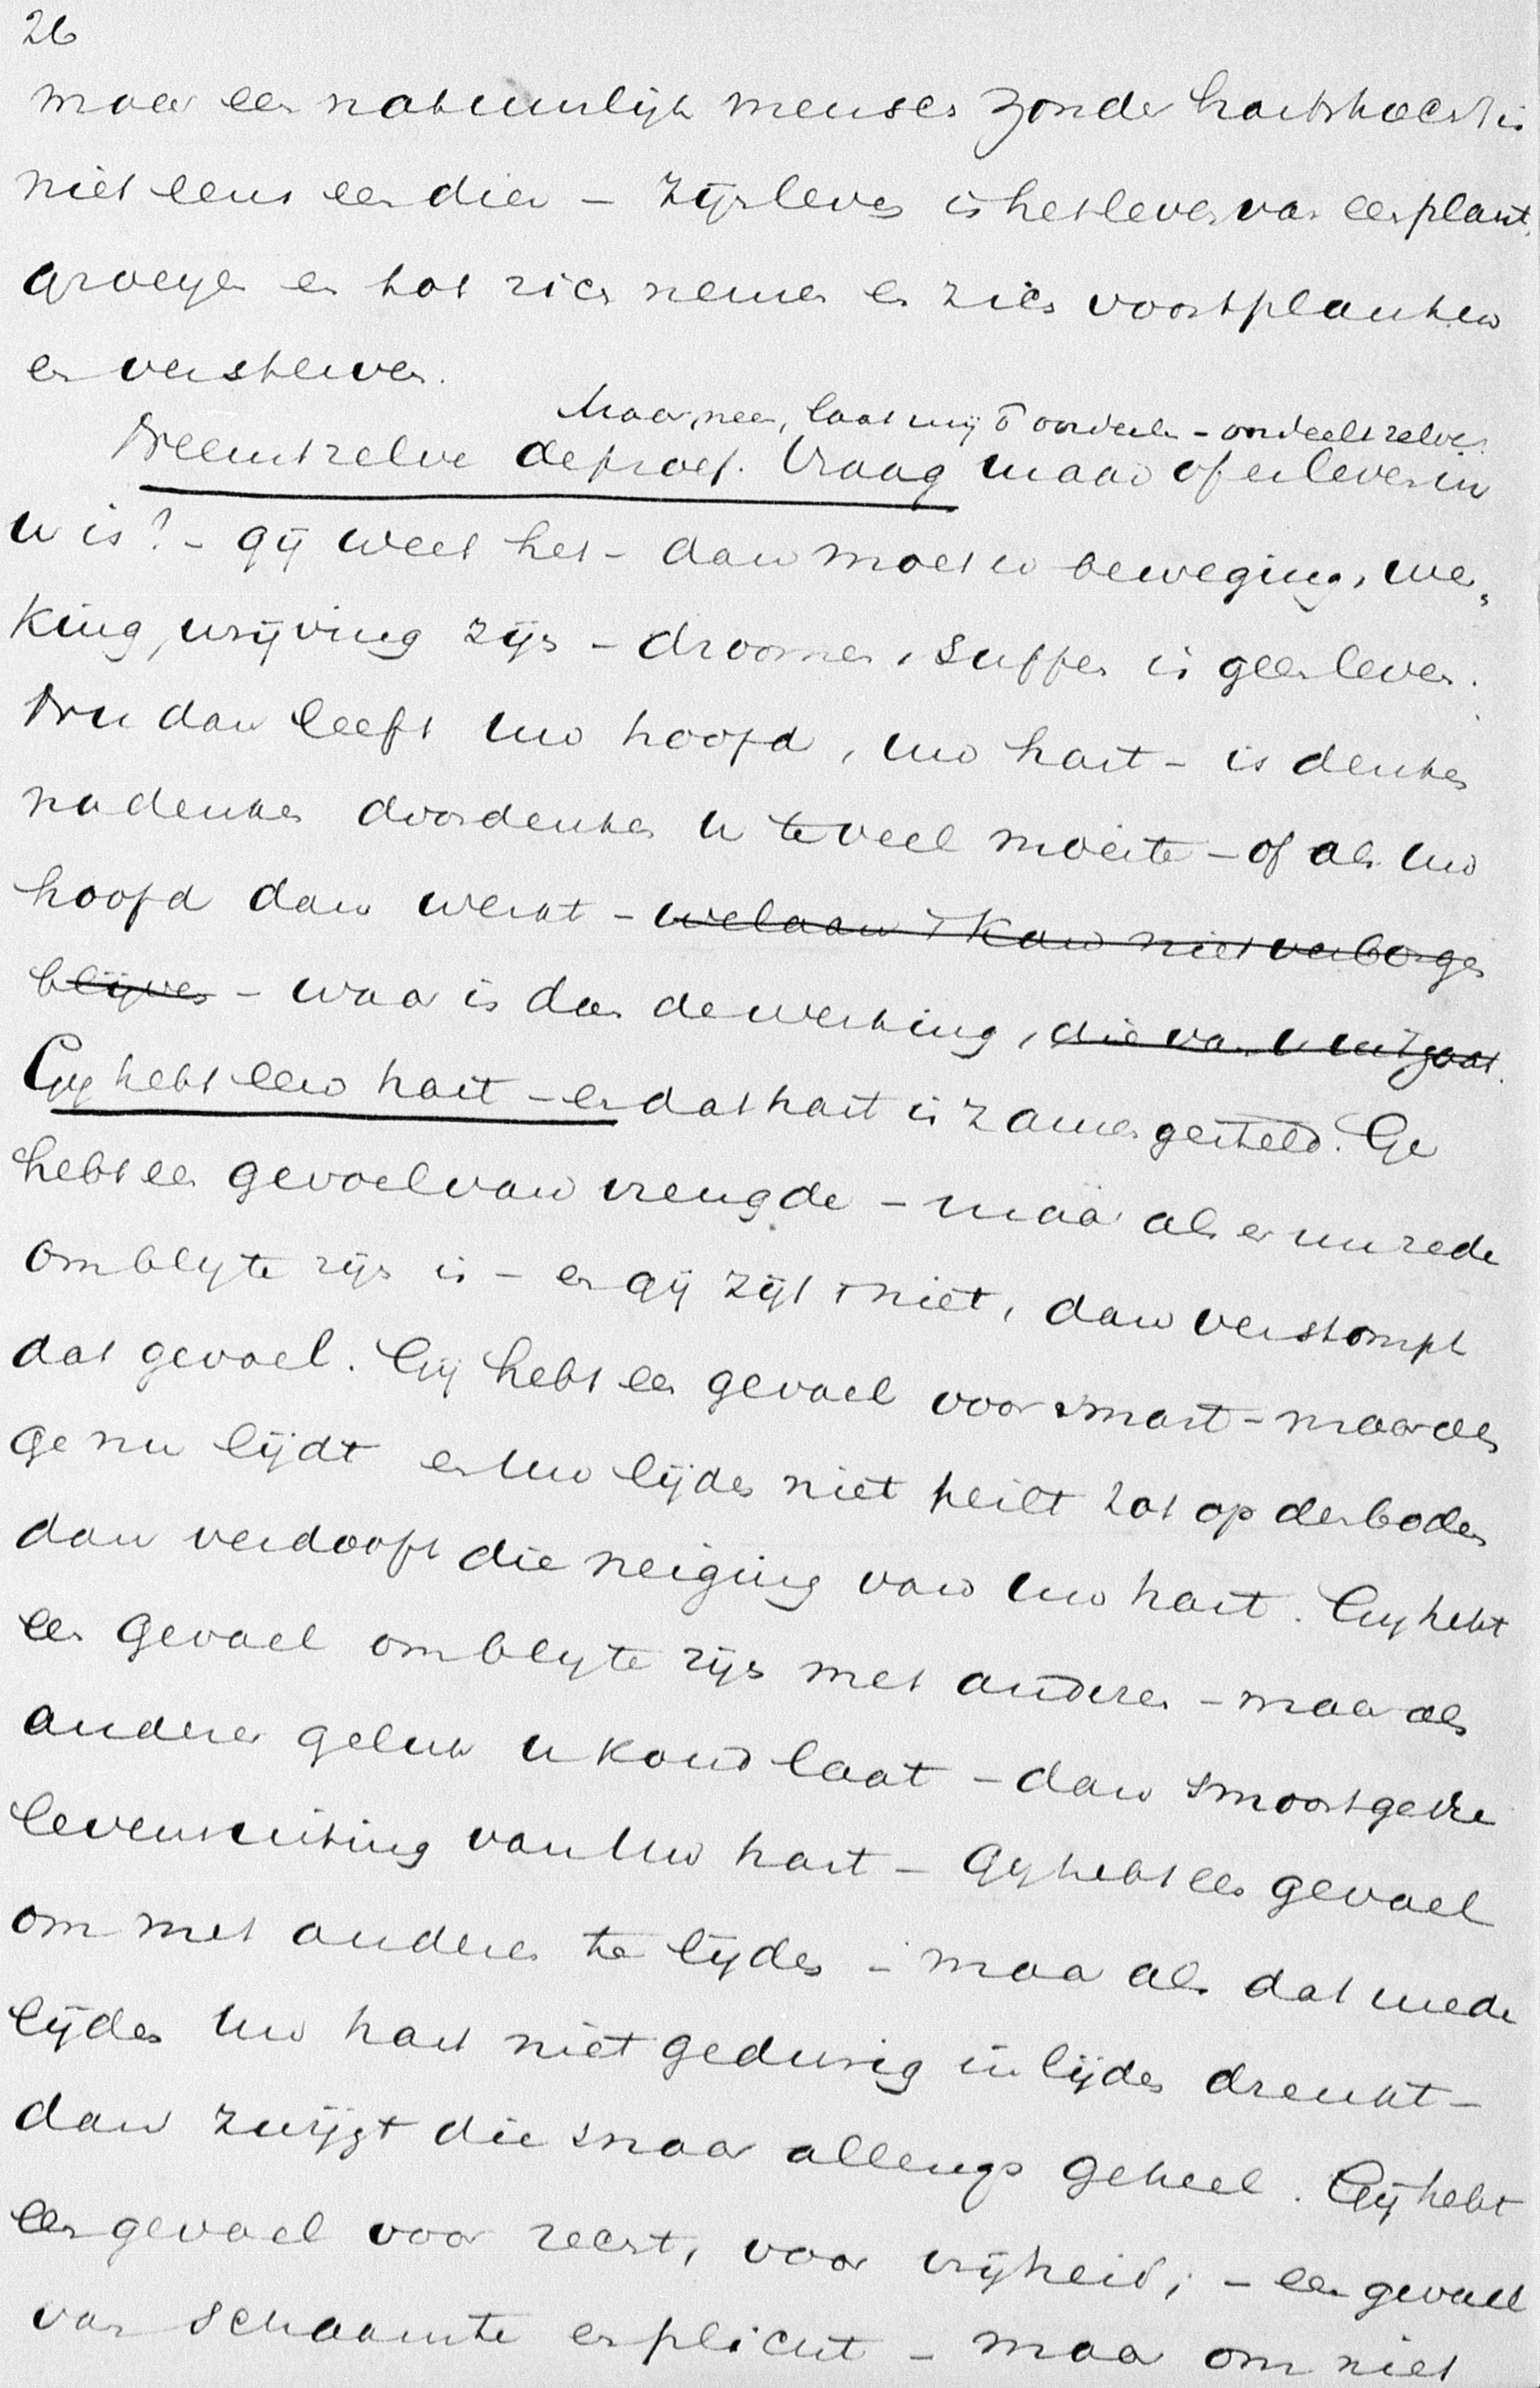 26
maar een natuurlijk mensch zonder hartstocht is
niet eens een dier – zijn leven is het leven van een plant.
groeyen en tot zich nemen en zich voortplanten
en versterven.
Maar neen, laat mij 't oordeelen – oordeelt zelve.
Neemt zelve de proef. Vraag maar of er leven in
u is? – gij weet het – dan moet er beweging, wer„
king, wrijving zijn – droomen, suffen is geen leven.
Nu dan leeft uw hoofd, uw hart – is denken
nadenken doordenken u te veel moeite – of als uw
hoofd dan werkt – welaan 't kan niet verborgen
blijven – waar is dan de werking, die van u uitgaat.
Gij hebt een hart – en dat hart is zamengesteld. Ge
hebt een gevoel van vreugde – maar als er nu rede
om bly te zijn is – en gij zijt 't niet, dan verstompt
dat gevoel. Gij hebt een gevoel voor smart – maar als
ge nu lijdt en uw lijden niet peilt tot op den bodem
dan verdooft die neiging van uw hart. Gij hebt
een gevoel om bly te zijn met anderen – maar als
anderer geluk u koud laat – dan smoort ge die
levensuiting van uw hart – Gij hebt een gevoel
om met anderen te lijden – maar als dat mede
lijden uw hart niet gedurig in lijden drenkt –
dan zwijgt die snaar allengs geheel. Gij hebt
een gevoel voor recht, voor vrijheid, – een gevoel
van schaamte en plicht – maar om niet